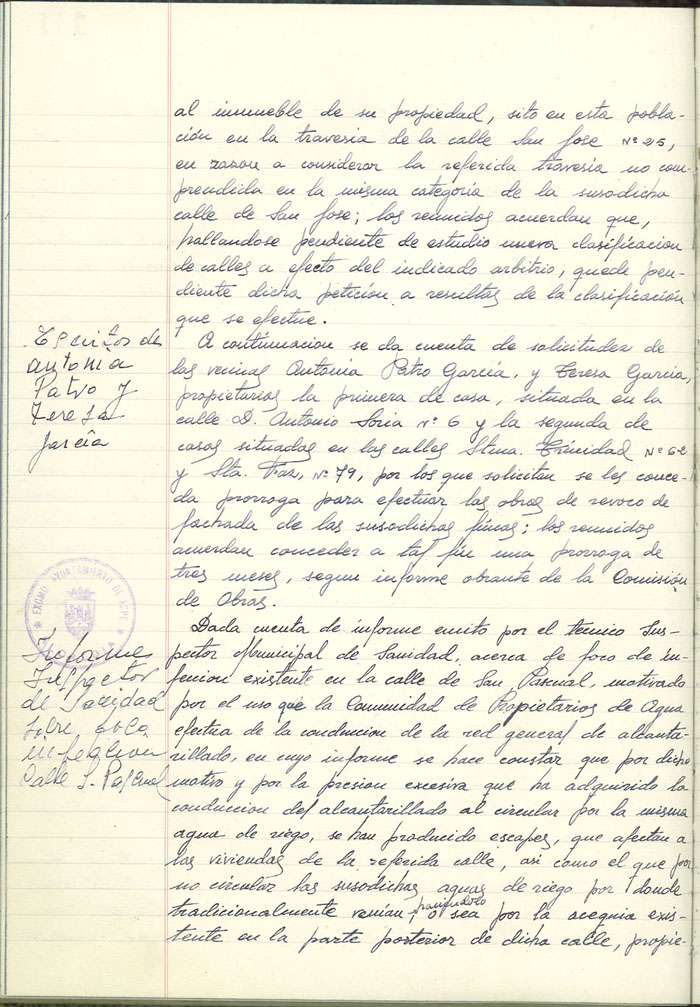 al inmueble de su propiedad, sito en esta pobla-
ción en la travesia de la calle San Jose Nº 25,
en razon a considerar la referida travesia no com-
prendida en la misma categoria de la susodicha
calle de San Jose; los reunidos acuerdan que,
hallandose pendiente de estudio nueva clasificacion
de calles a efecto del indicado arbitrio, quede pen-
diente dicha petición a resultas de la clasificación
que se efectue.
Escritos de
Antonia
Patro y
Teresa
García
A continuacion se da cuenta de solicitudes de
las vecinas Antonia Patro García, y Teresa García,
propietarias la primera de casa, situada en la
calle D. Antonio Soria Nº 6 y la segunda de
casas situadas en las calles Stma. Trinidad Nº 62
y Sta. Faz, Nº 79, por los que solicitan se les conce-
da prorroga para efectuar las obras de revoco de
fachada de las susodichas fincas; los reunidos
acuerdan conceder a tal fin una prorroga de
tres meses, segun informe obrante de la Comisión
de Obras.
EXCMO. AYUNTAMIENTO DE ASPE
Informe
Inspector
de Sanidad
sobre foco
infeccion
Calle S. Pascual
Dada cuenta de informe emito por el técnico Ins-
pector Municipal de Sanidad, acerca de foco de in-
feccion existente en la calle de San Pascual, motivado
por el uso que la Comunidad de Propietarios de Agua
efectua de la conduccion de la red general de alcanta-
rillado, en cuyo informe se hace constar que por dicho
motivo y por la presion excesiva que ha adquirido la
conduccion del alcantarillado al circular por la misma
agua de riego, se han producido escapes, que afectan a
las viviendas de la referida calle, asi como el que por
no circular las susodichas aguas de riego por donde
tradicionalmente venian, o sea por la acequia exis-
tente en la parte posterior de dicha calle, propie-